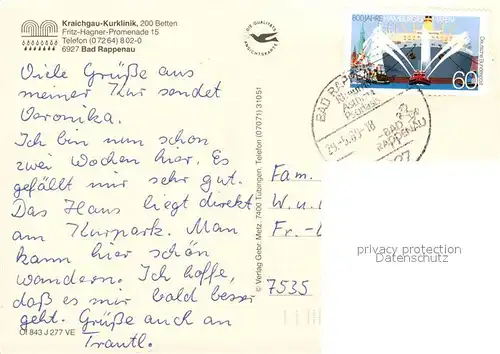 Kraichgau-Kurklinik, 200 Betten
Fritz-Hagner-Promenade 15
Telefon (0 72 64) 8 02-0
6927 Bad Rappenau
Viele Grüße aus
meiner Kur sendet
Veronika.
Ich bin nun schon
zwei Wochen hier. Es
gefällt mir sehr gut.
Das Haus liegt direkt
am Kurpark. Man
kann hier schön
wandern. Ich hoffe,
daß es mir bald besser
geht. Grüße auch an
Trautl.
Öl 843 J 277 VE
© Verlag Gebr. Metz, 7400 Tübingen, Telefon (07071) 31051
DIE QUALITÄTS
ANSICHTSKARTE
800 JAHRE HAMBURGER HAFEN
Deutsche Bundespost
60
BAD RAPPENAU
-BAD
RAPPENAU
Fam.
W. u.
Fr.-
7535
privacy protection
Datenschutz